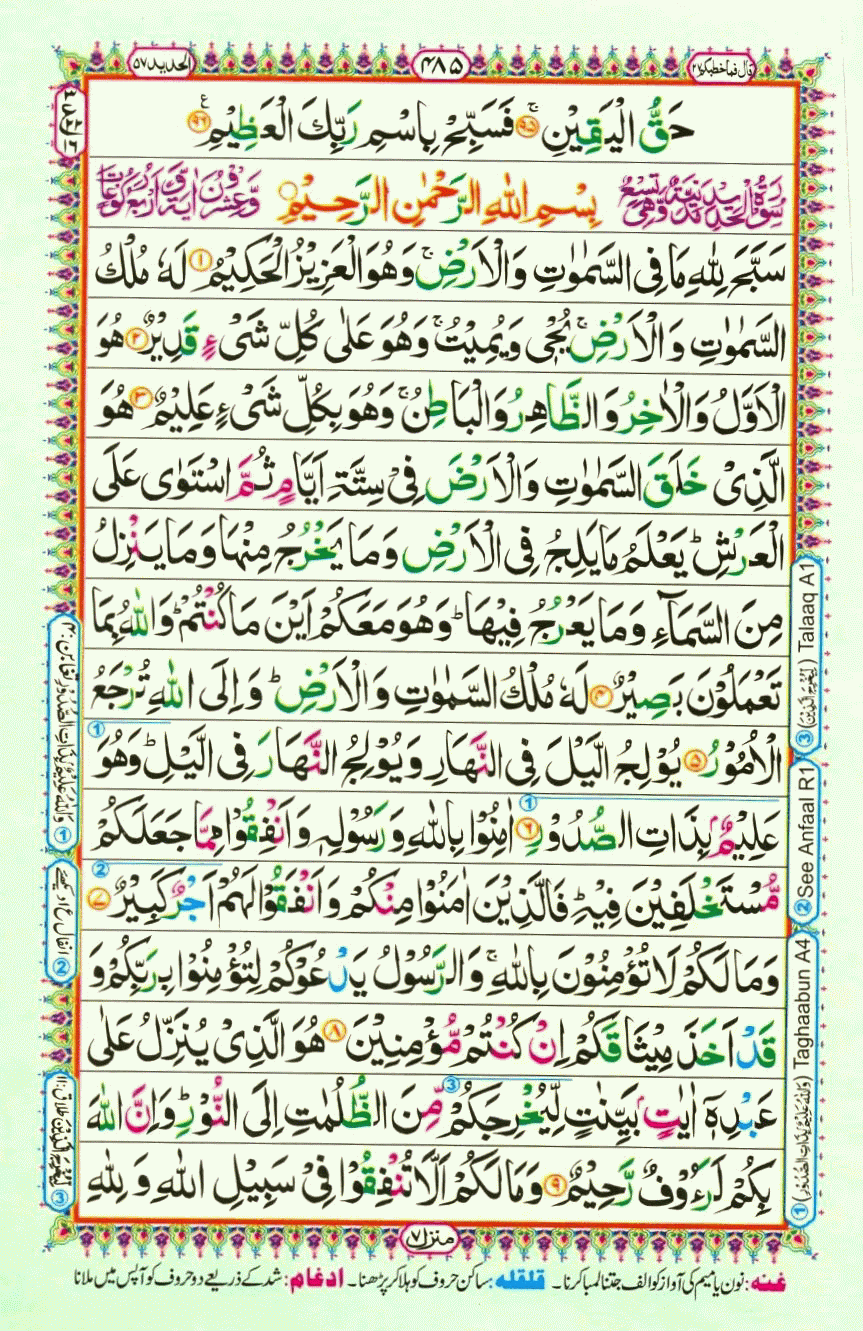 قال فما خطبكم ٢٧
٤٨٥
الحديد ٥٧
حَقُّ الْيَقِيْنِ ۚ﴿٩٥﴾ فَسَبِّحْ بِاسْمِ رَبِّكَ الْعَظِيْمِ ﴿٩٦﴾ ع
سُوْرَةُ الْحَدِيْدِ مَدَنِيَّةٌ وَّهِيَ تِسْعٌ بِسْمِ اللّٰهِ الرَّحْمٰنِ الرَّحِيْمِ وَّعِشْرُوْنَ اٰيَةً وَّاَرْبَعُ رُكُوْعَاتٍ
سَبَّحَ لِلّٰهِ مَا فِى السَّمٰوٰتِ وَ الْاَرْضِ ۚ وَهُوَ الْعَزِيْزُ الْحَكِيْمُ ﴿١﴾ لَهٗ مُلْكُ
السَّمٰوٰتِ وَ الْاَرْضِ ۚ يُحْىٖ وَ يُمِيْتُ ۚ وَهُوَ عَلٰى كُلِّ شَىْءٍ قَدِيْرٌ ﴿٢﴾ هُوَ
الْاَوَّلُ وَ الْاٰخِرُ وَ الظَّاهِرُ وَ الْبَاطِنُ ۚ وَهُوَ بِكُلِّ شَىْءٍ عَلِيْمٌ ﴿٣﴾ هُوَ
الَّذِىْ خَلَقَ السَّمٰوٰتِ وَ الْاَرْضَ فِىْ سِتَّةِ اَيَّامٍ ثُمَّ اسْتَوٰى عَلَى
الْعَرْشِ ؕ يَعْلَمُ مَا يَلِجُ فِى الْاَرْضِ وَ مَا يَخْرُجُ مِنْهَا وَ مَا يَنْزِلُ
مِنَ السَّمَآءِ وَ مَا يَعْرُجُ فِيْهَا ؕ وَهُوَ مَعَكُمْ اَيْنَ مَا كُنْتُمْ ؕ وَاللّٰهُ بِمَا
تَعْمَلُوْنَ بَصِيْرٌ ﴿٤﴾ لَهٗ مُلْكُ السَّمٰوٰتِ وَ الْاَرْضِ ؕ وَ اِلَى اللّٰهِ تُرْجَعُ
الْاُمُوْرُ ﴿٥﴾ يُوْلِجُ الَّيْلَ فِى النَّهَارِ وَ يُوْلِجُ النَّهَارَ فِى الَّيْلِ ؕ وَهُوَ
عَلِيْمٌۢ بِذَاتِ الصُّدُوْرِ ﴿٦﴾ اٰمِنُوْا بِاللّٰهِ وَ رَسُوْلِهٖ وَ اَنْفِقُوْا مِمَّا جَعَلَكُمْ
مُّسْتَخْلَفِيْنَ فِيْهِ ؕ فَالَّذِيْنَ اٰمَنُوْا مِنْكُمْ وَ اَنْفَقُوْا لَهُمْ اَجْرٌ كَبِيْرٌ ﴿٧﴾
وَ مَا لَكُمْ لَا تُؤْمِنُوْنَ بِاللّٰهِ ۚ وَ الرَّسُوْلُ يَدْعُوْكُمْ لِتُؤْمِنُوْا بِرَبِّكُمْ وَ
قَدْ اَخَذَ مِيْثَاقَكُمْ اِنْ كُنْتُمْ مُّؤْمِنِيْنَ ﴿٨﴾ هُوَ الَّذِىْ يُنَزِّلُ عَلٰى
عَبْدِهٖۤ اٰيٰتٍۭ بَيِّنٰتٍ لِّيُخْرِجَكُمْ مِّنَ الظُّلُمٰتِ اِلَى النُّوْرِ ؕ وَ اِنَّ اللّٰهَ
بِكُمْ لَرَءُوْفٌ رَّحِيْمٌ ﴿٩﴾ وَ مَا لَكُمْ اَلَّا تُنْفِقُوْا فِىْ سَبِيْلِ اللّٰهِ وَ لِلّٰهِ
① (وَاللّٰهُ عَلِيْمٌ بِذَاتِ الصُّدُوْرِ) Taghaabun A4 ② See Anfaal R1 ③ (لِيُخْرِجَ الَّذِيْنَ) Talaaq A1
① وَاللّٰهُ عَلِيْمٌ بِذَاتِ الصُّدُوْرِ تغابن: ٤
② انفال ع ا و دیکھئے
③ لِيُخْرِجَ الَّذِيْنَ طلاق: ١١
منزل ٧
غنہ: نون یا میم کی آواز کو الف جتنا لمبا کرنا۔ قلقلہ: ساکن حروف کو ہلا کر پڑھنا۔ ادغام: شد کے ذریعے دو حروف کو آپس میں ملانا